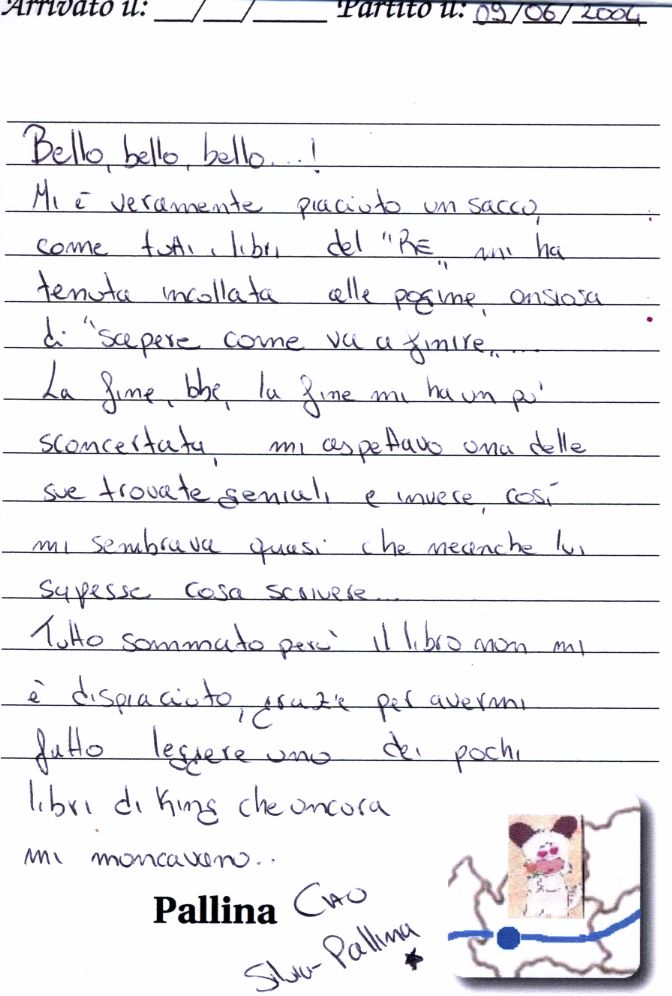 Arrivato il: __/__/____ Partito il: 09/06/2004
Bello, bello, bello...!
Mi è veramente piaciuto un sacco,
come tutti i libri del "RE" mi ha
tenuta incollata alle pagine, ansiosa
di "sapere come va a finire"...
La fine, bhe, la fine mi ha un po'
sconcertata, mi aspettavo una delle
sue trovate geniali e invece, così
mi sembrava quasi che neanche lui
sapesse cosa scrivere...
Tutto sommato però il libro non mi
è dispiaciuto, grazie per avermi
fatto leggere uno dei pochi
libri di King che ancora
mi mancavano..
Pallina Ciao
Silvia-Pallina